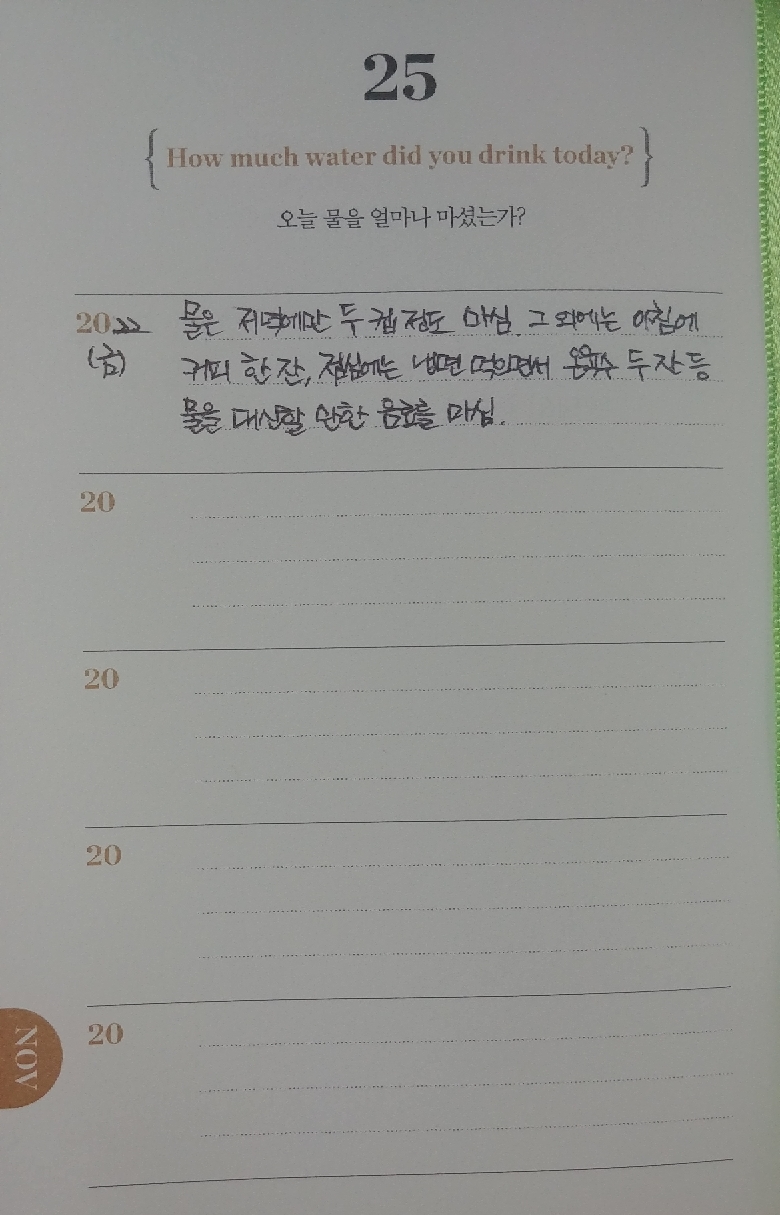 25
{ How much water did you drink today? }
오늘 물을 얼마나 마셨는가?
2022 물은 저녁에만 두 컵 정도 마심. 그 외에는 아침에
(금) 커피 한 잔, 점심에는 냉면 먹으면서 온육수 두 잔 등
물을 대신할 만한 음료를 마심.
20
20
20
20
NOV